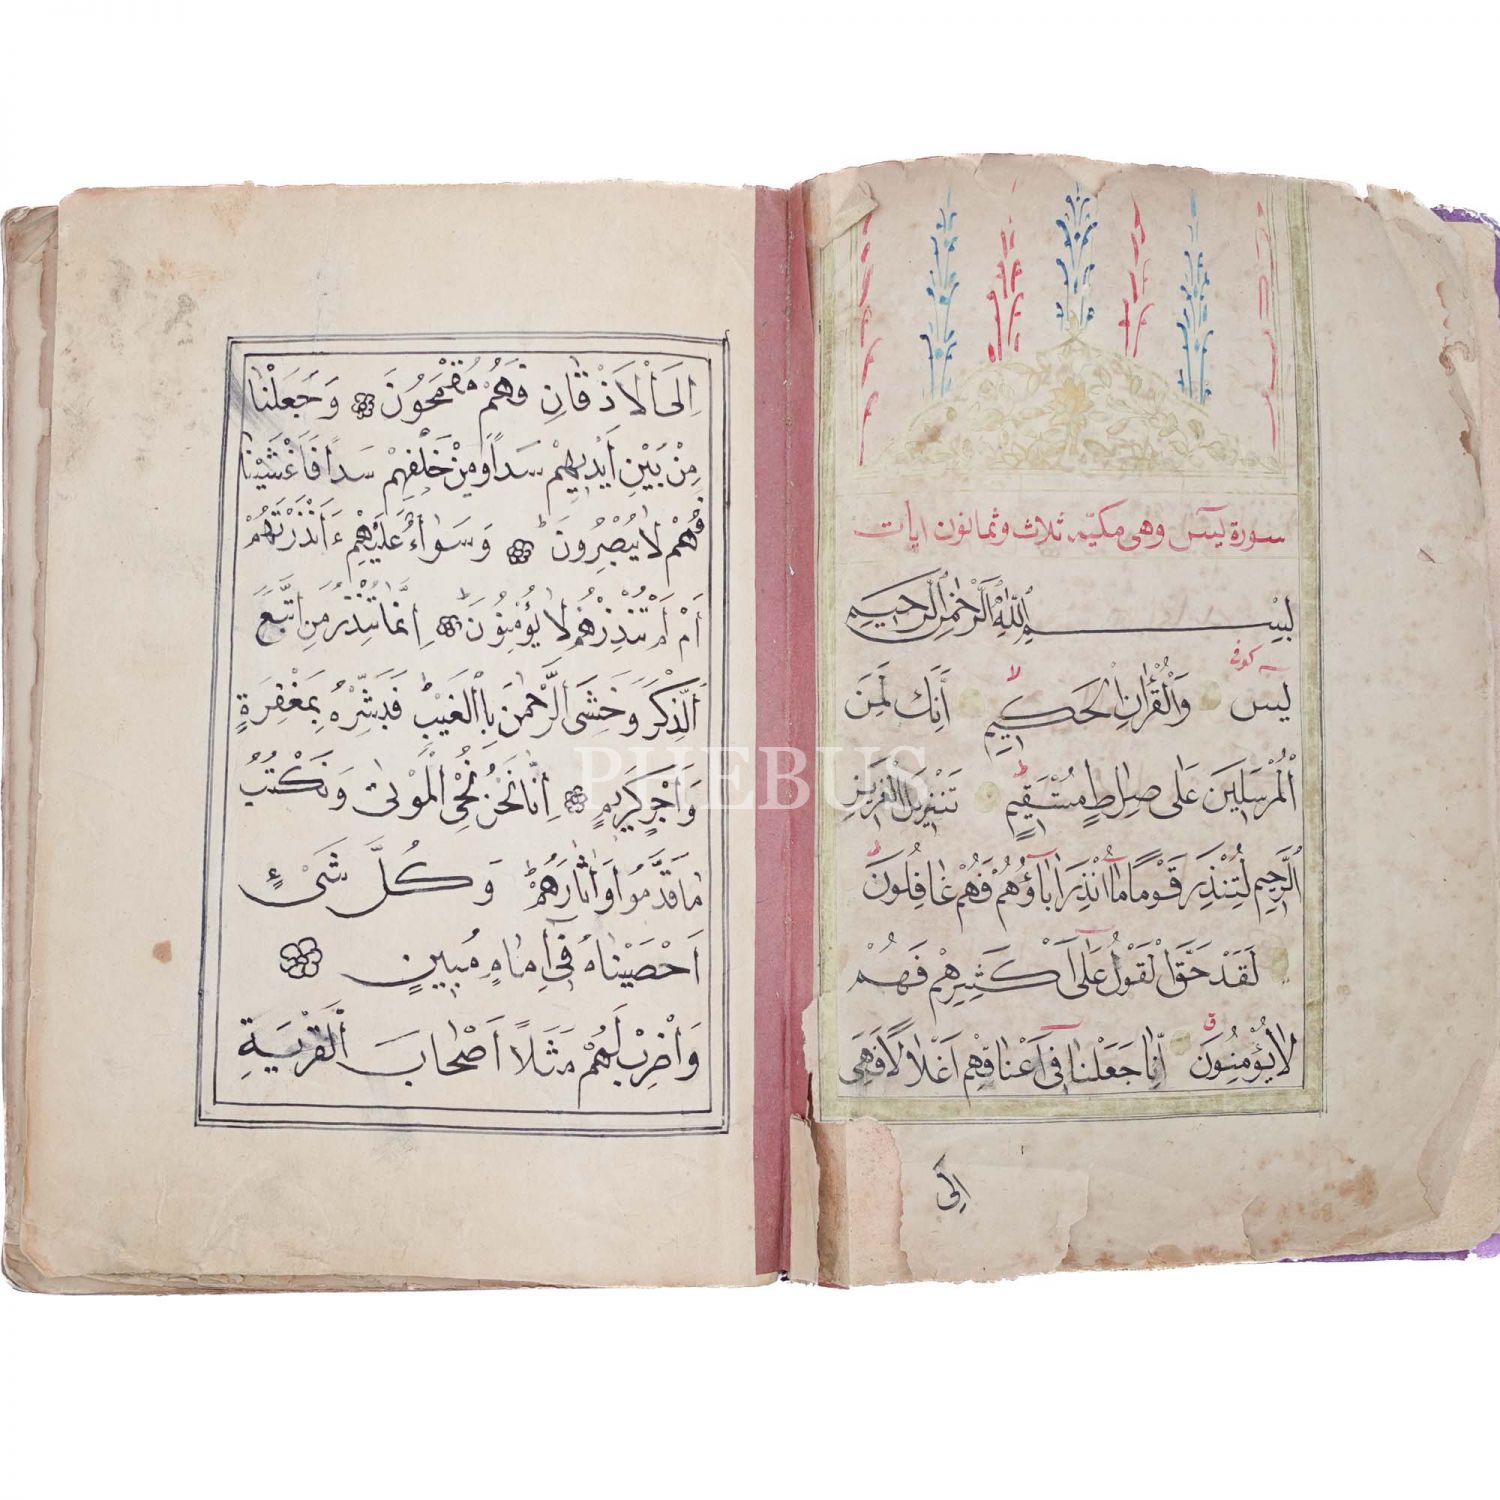 سورة يس وهى مكية ثلاث وثمانون ايات
بِسْمِ اللّٰهِ الرَّحْمٰنِ الرَّحِيمِ
كوفى
يس وَالْقُرْاٰنِ الْحَكِيمِ لا اِنَّكَ لَمِنَ
الْمُرْسَلِينَ عَلٰى صِرَاطٍ مُسْتَقِيمٍ ط تَنْزِيلَ الْعَزِيزِ
الرَّحِيمِ لِتُنْذِرَ قَوْمًا مَا اُنْذِرَ اٰبَاؤُهُمْ فَهُمْ غَافِلُونَ ط
لَقَدْ حَقَّ الْقَوْلُ عَلٰى اَكْثَرِهِمْ فَهُمْ
لَا يُؤْمِنُونَ ق اِنَّا جَعَلْنَا فِى اَعْنَاقِهِمْ اَغْلَالًا فَهِىَ
اِلَى
اِلَى الْاَذْقَانِ فَهُمْ مُقْمَحُونَ وَجَعَلْنَا
مِنْ بَيْنِ اَيْدِيهِمْ سَدًا وَمِنْ خَلْفِهِمْ سَدًا فَاَغْشَيْنَا
فَهُمْ لَا يُبْصِرُونَ ط وَسَوَاءٌ عَلَيْهِمْ ءَاَنْذَرْتَهُمْ
اَمْ لَمْ تُنْذِرْهُمْ لَا يُؤْمِنُونَ ط اِنَّمَا تُنْذِرُ مَنِ اتَّبَعَ
الذِّكْرَ وَخَشِىَ الرَّحْمٰنَ بِالْغَيْبِ ط فَبَشِّرْهُ بِمَغْفِرَةٍ
وَاَجْرٍ كَرِيمٍ اِنَّا نَحْنُ نُحْىِ الْمَوْتٰى وَنَكْتُبُ
مَا قَدَّمُوا وَاٰثَارَهُمْ ط وَكُلَّ شَىْءٍ
اَحْصَيْنَاهُ فِى اِمَامٍ مُبِينٍ
وَاضْرِبْ لَهُمْ مَثَلًا اَصْحَابَ الْقَرْيَةِ
PHEBUS